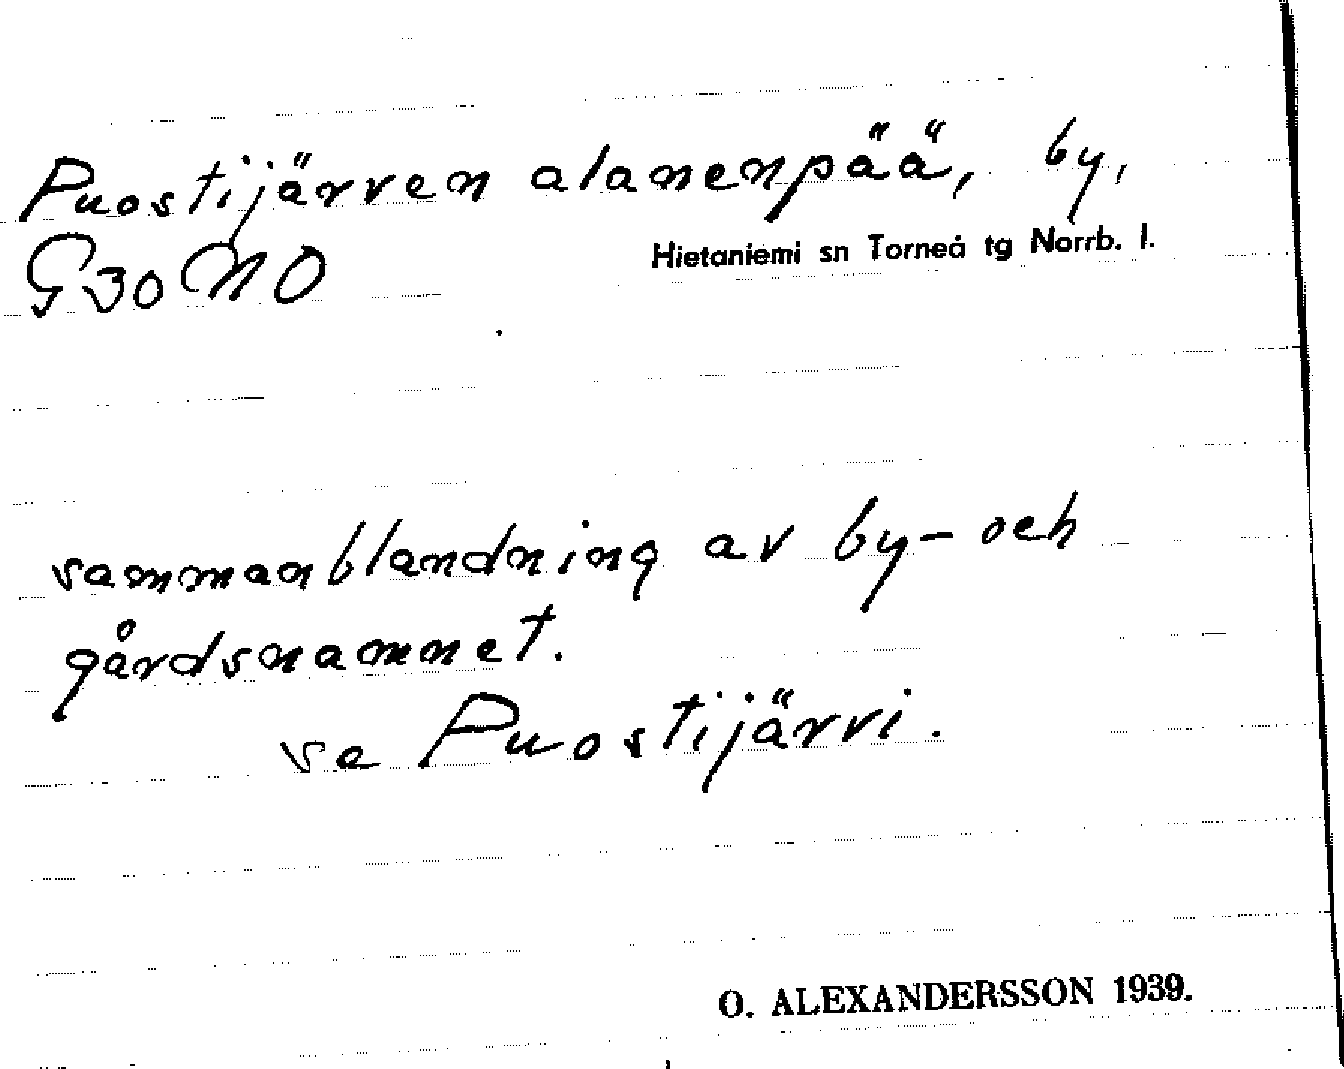 Puostijärven alanenpää, by,
G30NO
Hietaniemi sn Torneå tg Norrb. l.
sammanblandning av by- och
gårdsnamnet.
se Puostijärvi.
O. ALEXANDERSSON 1939.